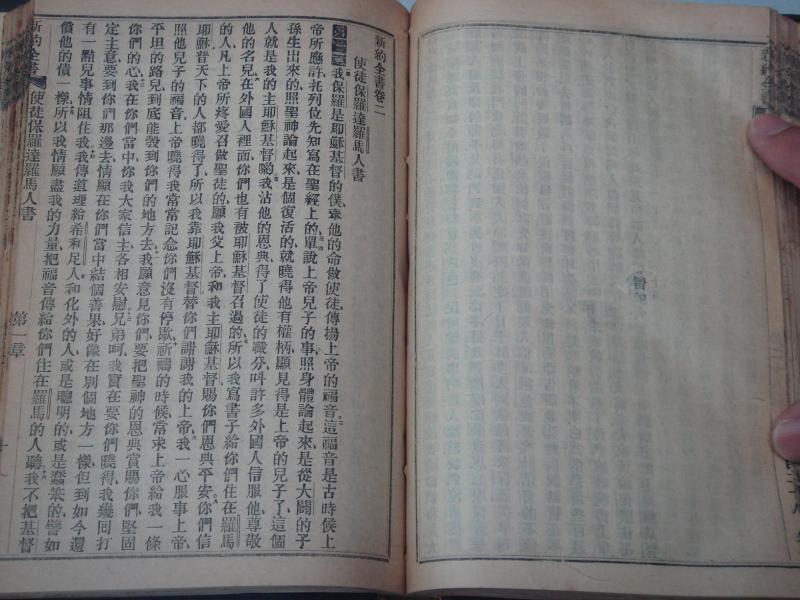 新約全書卷二
使徒保羅達羅馬人書
第一章我保羅是耶穌基督的僕、奉他的命做使徒、傳揚上帝的福音、這福音是古時候上
帝所應許、托列位先知寫在聖經上的、單說上帝兒子的事、照身體論起來、是從大闢的子
孫生出來的、照聖神論起來、是個復活的、就曉得他有權柄、顯見得是上帝的兒子了、這個
人就是我的主耶穌基督喲、我沾他的恩典、得了使徒的職分、叫許多外國人信服他、尊敬
他的名兒、在外國人裡面、你們也有被耶穌基督召過的、所以我寫書子給你們住在羅馬
的人、凡上帝所疼愛、召做聖徒的、願我父上帝、和我主耶穌基督、賜你們恩典平安、你們信
耶穌、普天下的人都曉得了、所以我靠耶穌基督替你們謝謝我的上帝、我一心服事上帝、
照他兒子的福音、上帝曉得我常常記念你們、沒有停歇、祈禱的時候、當求上帝給我一條
平坦的路兒、到底能彀到你們的地方去、我願意見你們、要把聖神的恩典賞賜你們、堅固
你們的心、我在你們當中、你我大家信主、各相安慰、兄弟呵、我實在要你們曉得、我幾回打
定主意、要到你們那邊去、情願在你們當中結個善果、好像在別個地方一樣、但到如今還
有一點兒事情阻住我、我傳道理給希利尼人、和化外的人、或是聰明的、或是蠢笨的、譬如
償他的債一樣、所以我情願盡我的力量、把福音傳給你們住在羅馬的人聽、我不把基督
新約全書 使徒保羅達羅馬人書 第一章